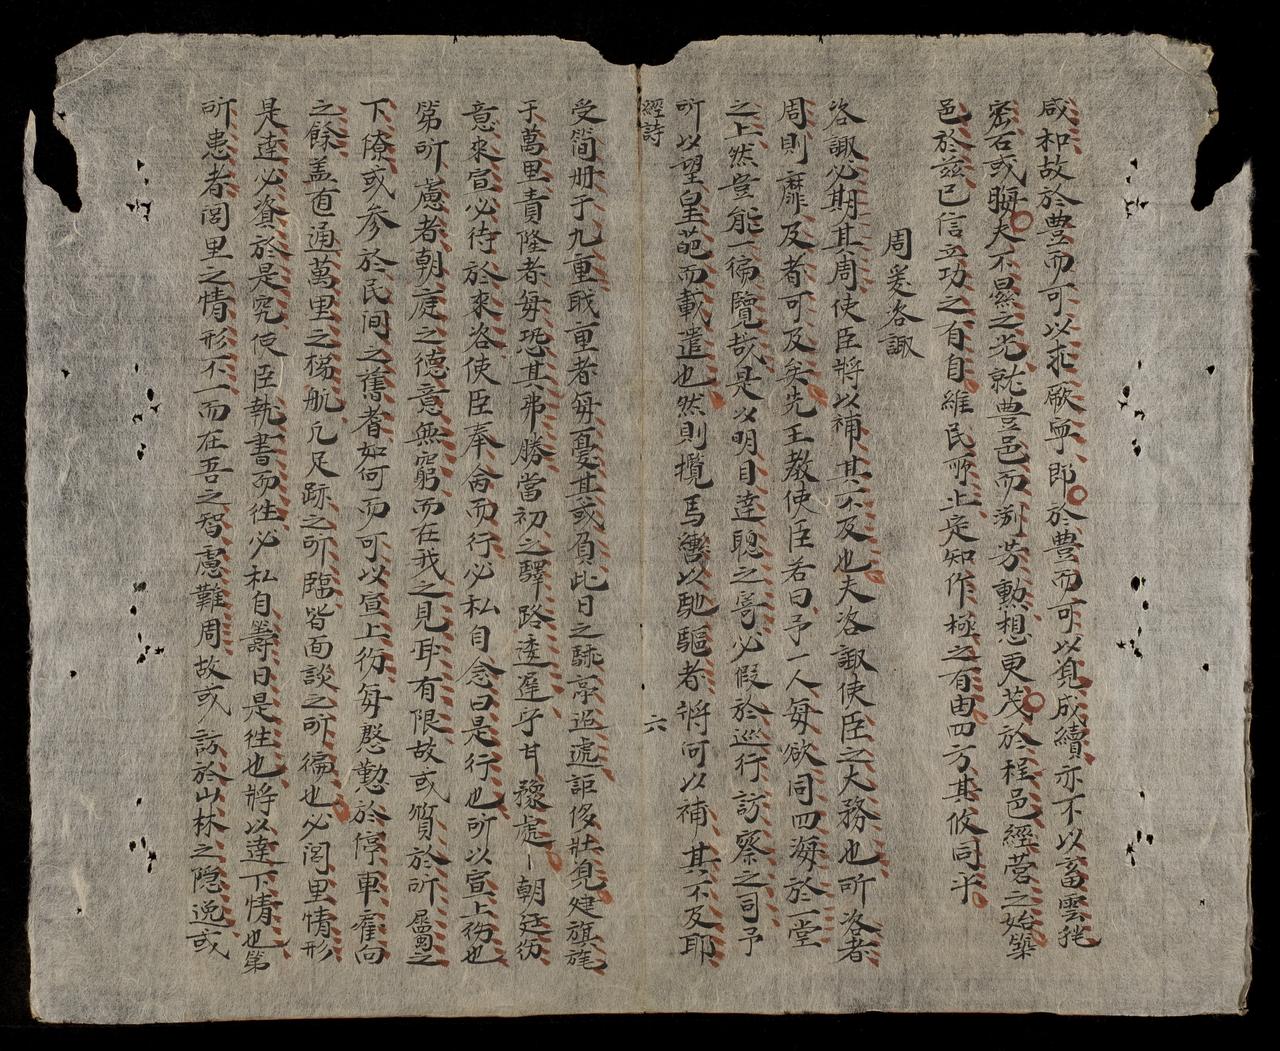 咸和故於豊而可以乖厥寧即於豊而可以覓成績亦不以畜雲㧌
密石或
夫不㬎之光就豊邑而測芳勲想更茂於程邑經营之始築
邑於兹已信立功之有自維民所止定知作極之有由四方其攸同乎
周爰咨諏
咨諏必期其周使臣將以補其不及也夫咨諏使臣之大務也所咨者
周則靡及者可及矣先王教使臣若曰予一人每欲同四海於一堂
之上然豈能一徧覽哉是以明目達聰之寄必假於巡行訪察之司予
所以望皇華而載遣也然則攬馬轡以馳驅者將何以補其不及耶
經詩
六
受简册于九重戢重者每憂其或負此日之
亭巡處詎侈壯覓建旗旄
于萬里責隆者每恐其弗勝當初之驛路逶遲乎甘豫處一朝廷伤
意來宣必待於來咨使臣奉命而行必私自念曰是行也所以宣上伤也
第所慮者朝庭之德意無窮而在我之見耳有限故或質於所屬之
下僚或参於民间之舊者如何而可以宣上伤每慇懃於停車雇向
之餘盖直通萬里之梯航凢足跡之所臨皆面談之所徧也必閭里情形
是達必資於是究使臣執書而徃必私自籌日是徃也將以達下情也第
所患者閭里之情形不一而在吾之智慮難周故或訪於山林之隐逸或